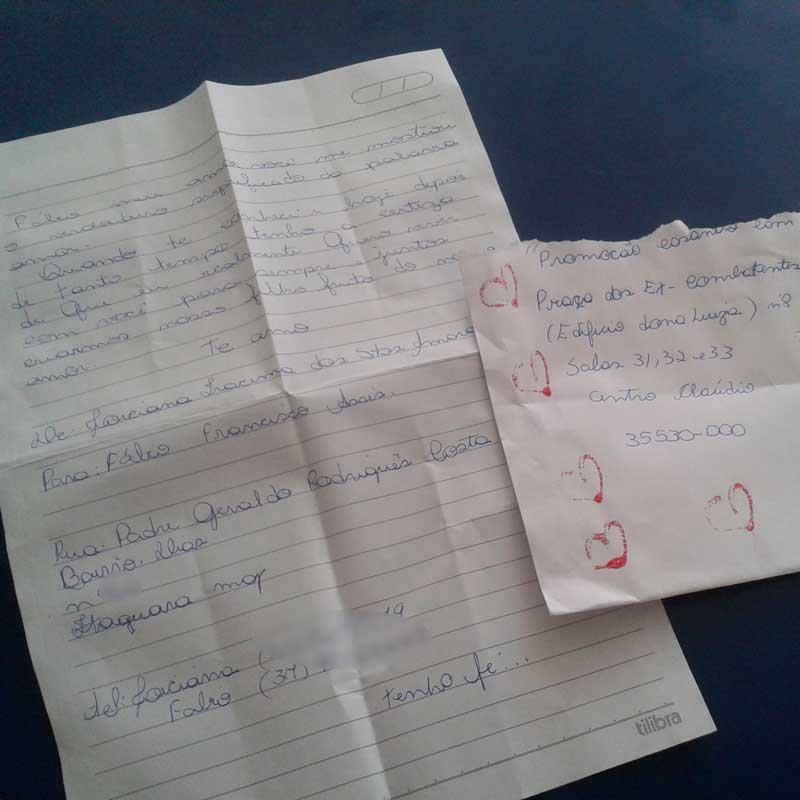 Fábio meu amor você me mostrou
o verdadeiro significado da palavra
amor.
Quando te conheci e hoje depois
de tanto tempo tenho a certeza
da que eu realmente Quero viver
com você para sempre e juntos
criarmos nosso filho fruto do nosso
amor. Te amo
De: Joiciana Iracima dos Stos
Para: Fábio Francisco Assis.
Rua: Padre Geraldo Rodrigues Costa
Bairro: Ilhas
nº
Itaguara mg
tel: Joiciana (
Fabio (37)
tenho fé...
tilibra
"Promoção casando com
Praça dos Ex-Combatentes
(Edificio dona Luzia) nº8
Salas 31, 32 e 33
Centro Claúdio
35530-000